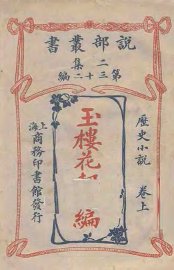 說部叢書
第二集三十二編
歷史小說 卷上
玉樓花
編
上海商務印書館發行